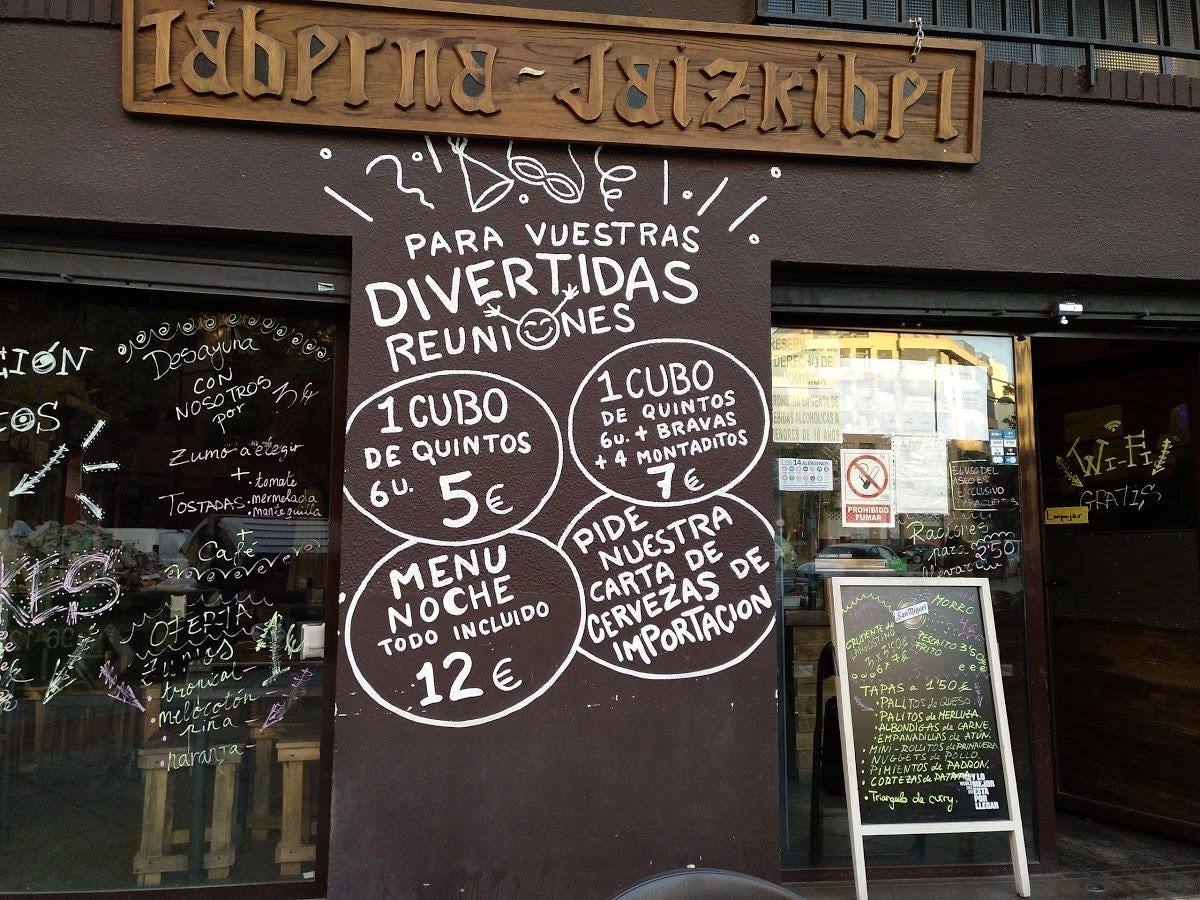 Taberna - Jaizkibel
PARA VUESTRAS
DIVERTIDAS
REUNIONES
1 CUBO
DE QUINTOS
6 U.
5€
1 CUBO
DE QUINTOS
6u. + BRAVAS
+ 4 MONTADITOS
7€
MENU
NOCHE
TODO INCLUIDO
12€
PIDE
NUESTRA
CARTA DE
CERVEZAS DE
IMPORTACION
Desayuna
CON
NOSOTROS
por
Zumo a elegir
+
TOSTADAS
• tomate
• mermelada
• mantequilla
+
Café
OFERTA
Zumos
• tropical
• melocotón
• piña
• naranja
DERECHO DE
LOS 14 ALÉRGENOS
PROHIBIDO
FUMAR
EL USO DEL
ASEO ES
EXCLUSIVO
Raciones
para
llevar
2'50
WI-FI
GRATIS
Empujar
San Miguel
MORRO
4€
PESCAITO
FRITO
3'50€
TAPAS a 1'50€
• PALITOS de QUESO
• PALITOS de MERLUZA
• ALBONDIGAS de CARNE
• EMPANADILLAS de ATÚN
• MINI-ROLLITOS de PRIMAVERA
• NUGGETS de POLLO
• PIMIENTOS de PADRON
• CORTEZAS de PATATA
• Triangulo de curry.
Y LO
MEJOR
ESTÁ
POR
LLEGAR